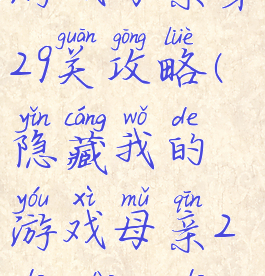 guān gōng lüè
29关攻略(
yǐn cáng wǒ de
隐藏我的
yóu xì mǔ qīn
游戏母亲2